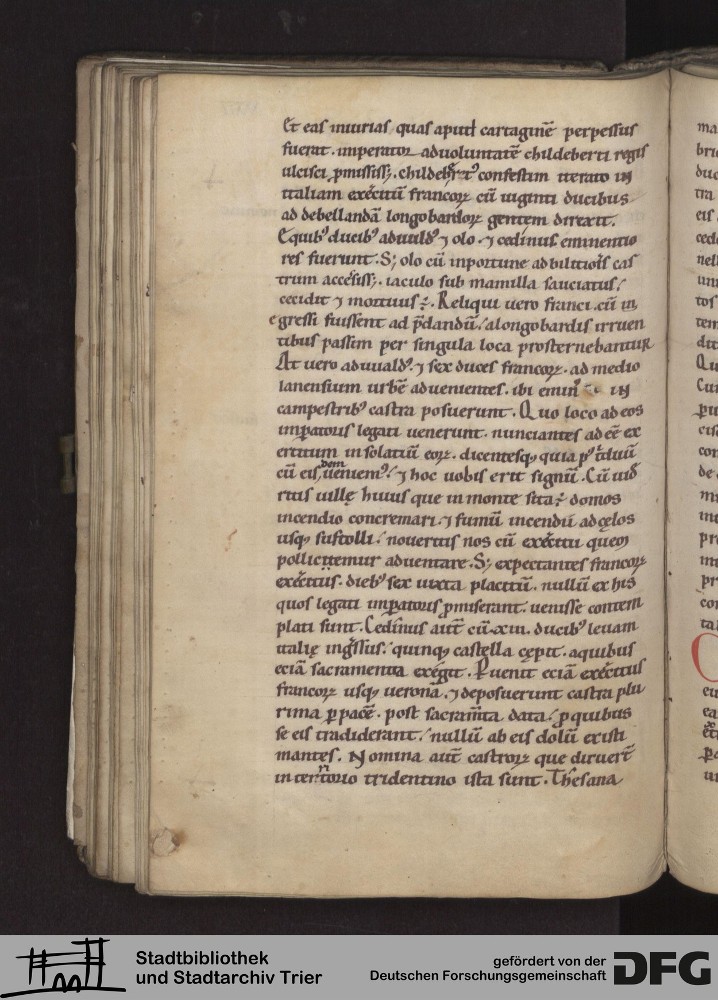 Et eas iniurias quas aput cartaginē perpessus
fuerat. imperator ad uoluntatē childeberti regis
ulcisci p̄misiss;. childebertꝰ confestim iterato in
italiam exercitū francoꝝ cū uiginti ducibus
ad debellandā longobardoꝝ gentem direxit.
Equibꝰ ducibꝰ aduualdꝰ ⁊ olo. ⁊ cedinus eminentio
res fuerunt. S; olo cū inportune ad bilitionis cas
trum accessiss;. iaculo sub mamilla sauciatus
cecidit ⁊ mortuus ÷. Reliqui uero franci. cū in
egressi fuissent ad p̄dandū. a longobardis irruen
tibus passim per singula loca prosternebantur
At uero aduualdꝰ. ⁊ sex duces francoꝝ. ad medio
lanensium urbē aduenientes. ibi emin̄ in
campestribꝰ castra posuerunt. Quo loco ad eos
imꝑatoris legati uenerunt. nunciantes adeē ex
ercitum in solatiū eoꝝ. dicentesqꝫ quia pꝰ triduū
cū eisdem ueniemꝰ. ⁊ hoc uobis erit signū. Cū uid̄
ritis uillę huius que in monte sita ÷ domos
incendio concremari. ⁊ fumū incendii ad cęlos
usqꝫ sustolli. noueritis nos cū exercitu quem
pollicitemur aduentare. S; expectantes francoꝝ
exercitus. diebꝰ sex iuxta placitū. nullū ex his
quos legati imꝑatoris p̄miserant. uenisse contem
plati sunt. Cedinus aut̄ cū .xiii. ducibꝰ leuam
italię ingressus. quinqꝫ castella cępit. a quibus
eciā sacramenta exegit. Peruenit eciā exercitus
francoꝝ usqꝫ ueronā. ⁊ deposuerunt castra plu
rima ꝑ pacē. post sacram̄ta data. ꝓ quibus
se eis tradiderant. nullū ab eis dolū existi
mantes. Nomina aut̄ castroꝝ que diruert̄
in territorio tridentino ista sunt. Thesana
Stadtbibliothek
und Stadtarchiv Trier
gefördert von der
Deutschen Forschungsgemeinschaft
DFG